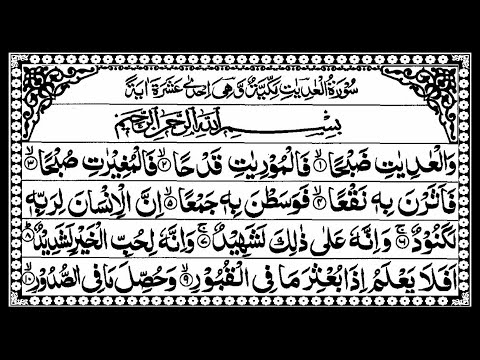 سُوْرَةُ الْعٰدِيٰتِ مَكِّيَّةٌ وَّهِيَ اِحْدٰى عَشْرَةَ اٰيَةً
بِسْمِ اللّٰهِ الرَّحْمٰنِ الرَّحِيْمِ
وَالْعٰدِيٰتِ ضَبْحًا ۙ۝۱ فَالْمُوْرِيٰتِ قَدْحًا ۙ۝۲ فَالْمُغِيْرٰتِ صُبْحًا ۙ۝۳
فَاَثَرْنَ بِهٖ نَقْعًا ۙ۝۴ فَوَسَطْنَ بِهٖ جَمْعًا ۙ۝۵ اِنَّ الْاِنْسَانَ لِرَبِّهٖ
لَكَنُوْدٌ ۚ۝۶ وَاِنَّهٗ عَلٰى ذٰلِكَ لَشَهِيْدٌ ۚ۝۷ وَاِنَّهٗ لِحُبِّ الْخَيْرِ لَشَدِيْدٌ ؕ۝۸
اَفَلَا يَعْلَمُ اِذَا بُعْثِرَ مَا فِى الْقُبُوْرِ ۙ۝۹ وَحُصِّلَ مَا فِى الصُّدُوْرِ ۙ۝۱۰